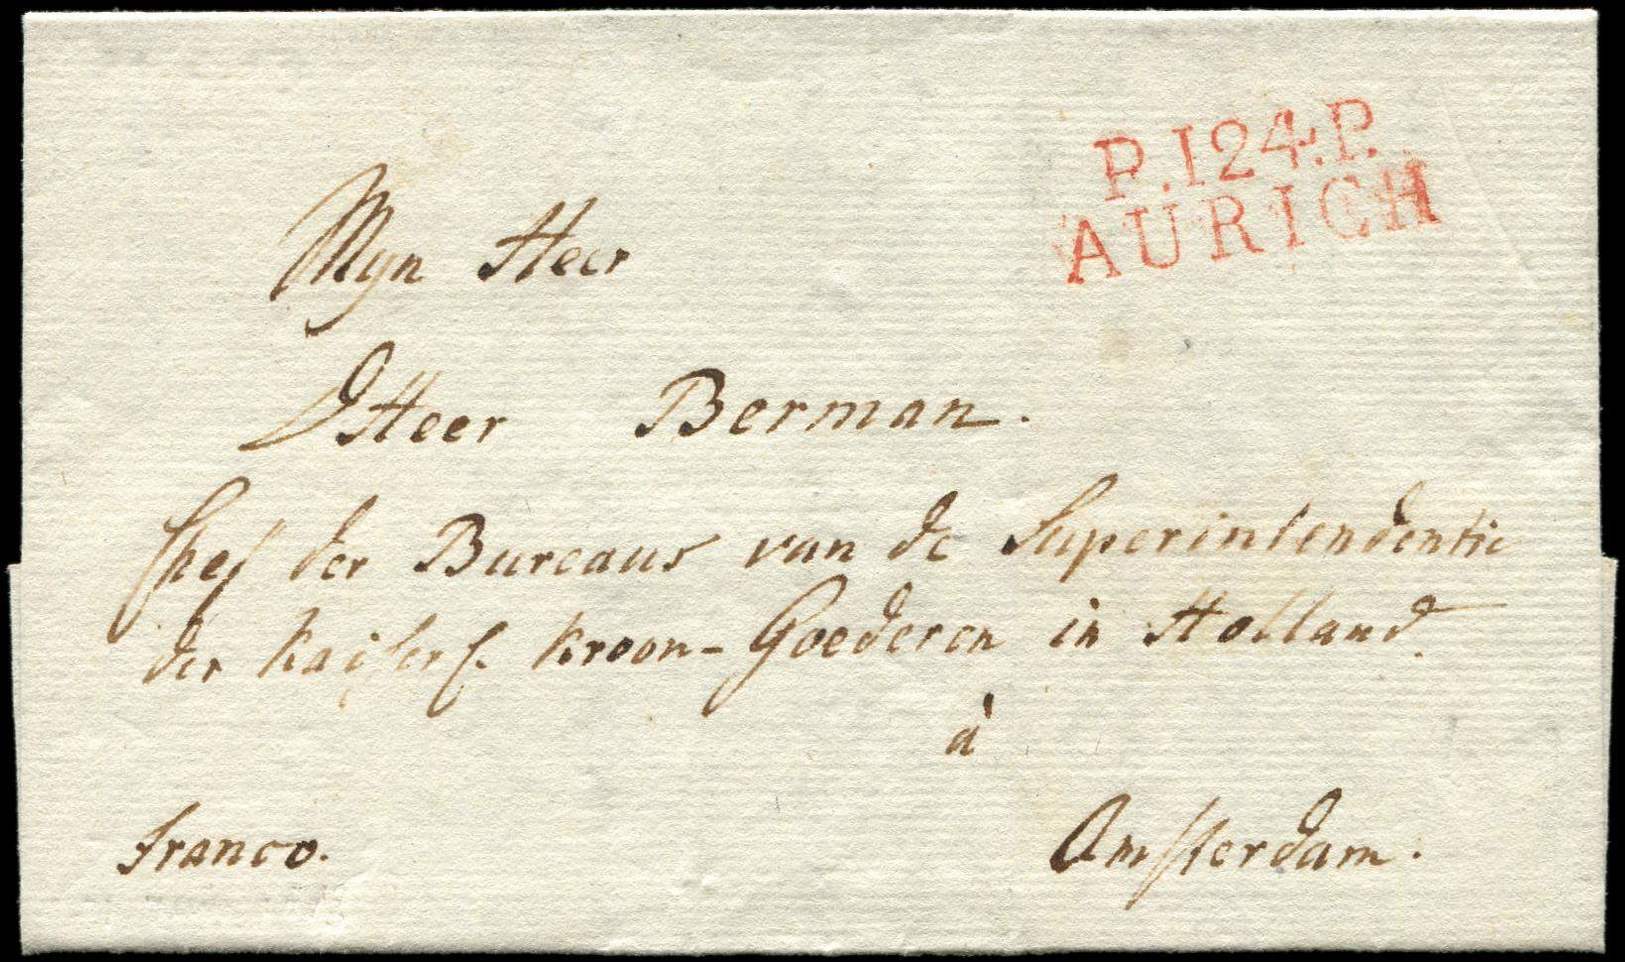 P.124.P.
AURICH
Myn Heer
D Heer Berman.
Chef der Bureaus van de Superintendentie
der Kaiserl. Kroon-Goederen in Holland.
à
Amsterdam.
franco.